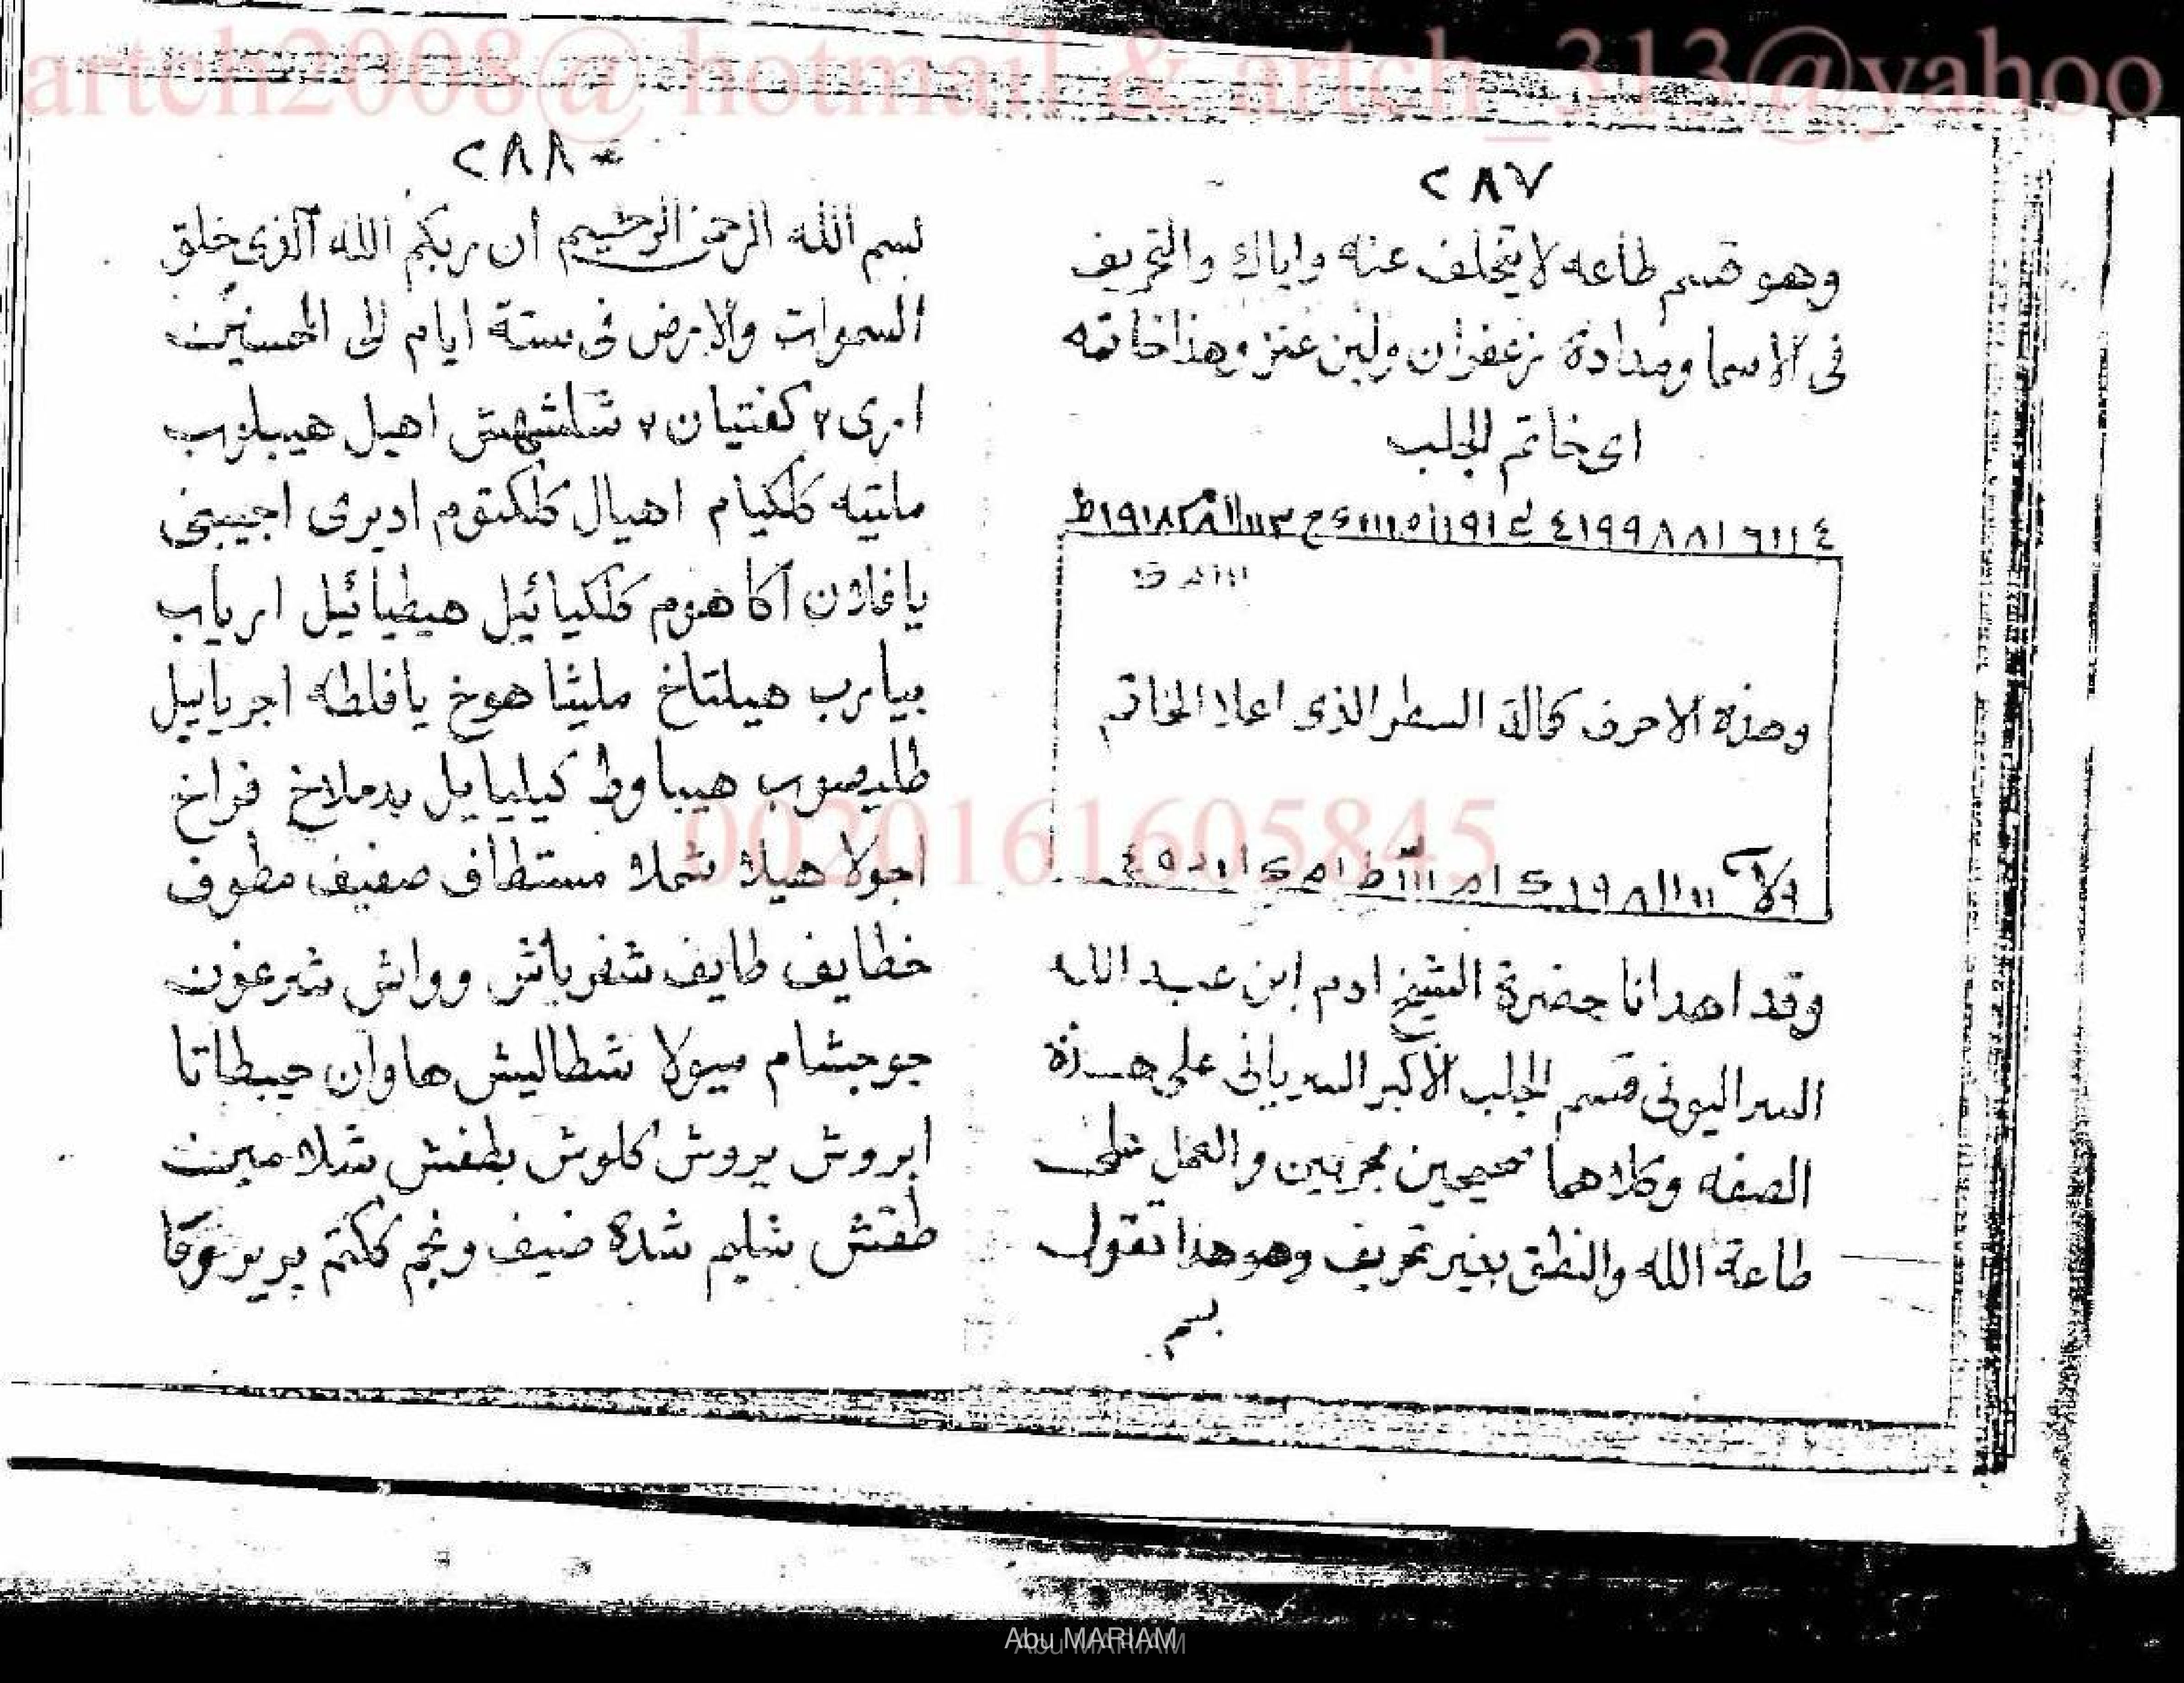 artch2008@ hotmail & artch_313@yahoo
٢٨٧
وهو قسم طاعه لا يتخلف عنه واياك والتحريف
فى الاسما ومداده زعفران ولبن عنز وهذا خاتمه
اى خاتم الجلب
وهذه الاحرف كمالة السطر الذى اعلا الخاتم
وقد اهدانا حضرة الشيخ ادم ابن عبد الله
السراليونى قسم الجلب الأكبر السريانى على هذة
الصفه وكلاهما صحيحين مجربين والعمل على
طاعة الله والنطق بغير تحريف وهو هذا تقول
بسم
٢٨٨
بسم الله الرحمن الرحيم ان ربكم الله الذى خلق
السموات والارض فى ستة ايام الى المحسنين
ازى ٢ كفتيان ٢ شلشهش اهيل هيبلوب
ملتيه كلكيام اهيال كلكتوم اديرى اجيبنى
اكاهوم كلكيائيل هيطيائيل ارياب
بيارب هيلتاخ مليثا هوخ يافلطه اجريابيل
هيباوط كيليايل بدملاخ فراخ
اجولا هيلا شملا مستطاف صفيف مطوف
خطايف طايف شفرباش وواش شرعون
جوجشام ميولا شطاليش هاوان حيطاتا
ابروش يروش كلوش بطفش شلامين
طقش شليم شدة ضيف ونجم كلكتم
00201616​05845
Abu MARIAM